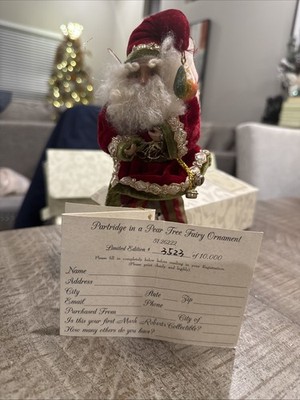 Partridge in a Pear Tree Fairy Ornament
Limited Edition # 3523 of 10,000
Please fill in completely below before sending in your Registration.
(Please print clearly and legibly)
Name
Address
City State Zip
Email Phone
Purchased From City of
Is this your first Mark Roberts Collectible?
How many others do you have?